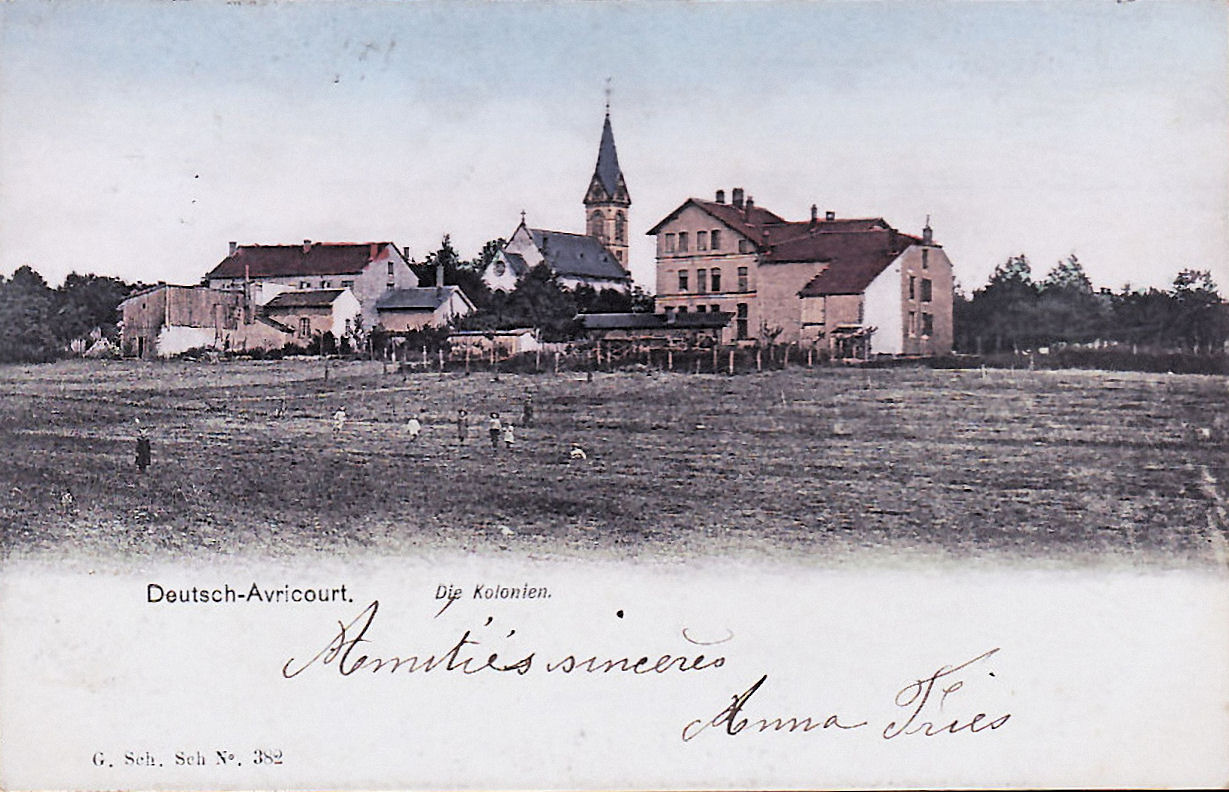 Deutsch-Avricourt. Die Kolonien.
Amitiés sincères
Anna Fries
G. Sch. Sch Nº. 382